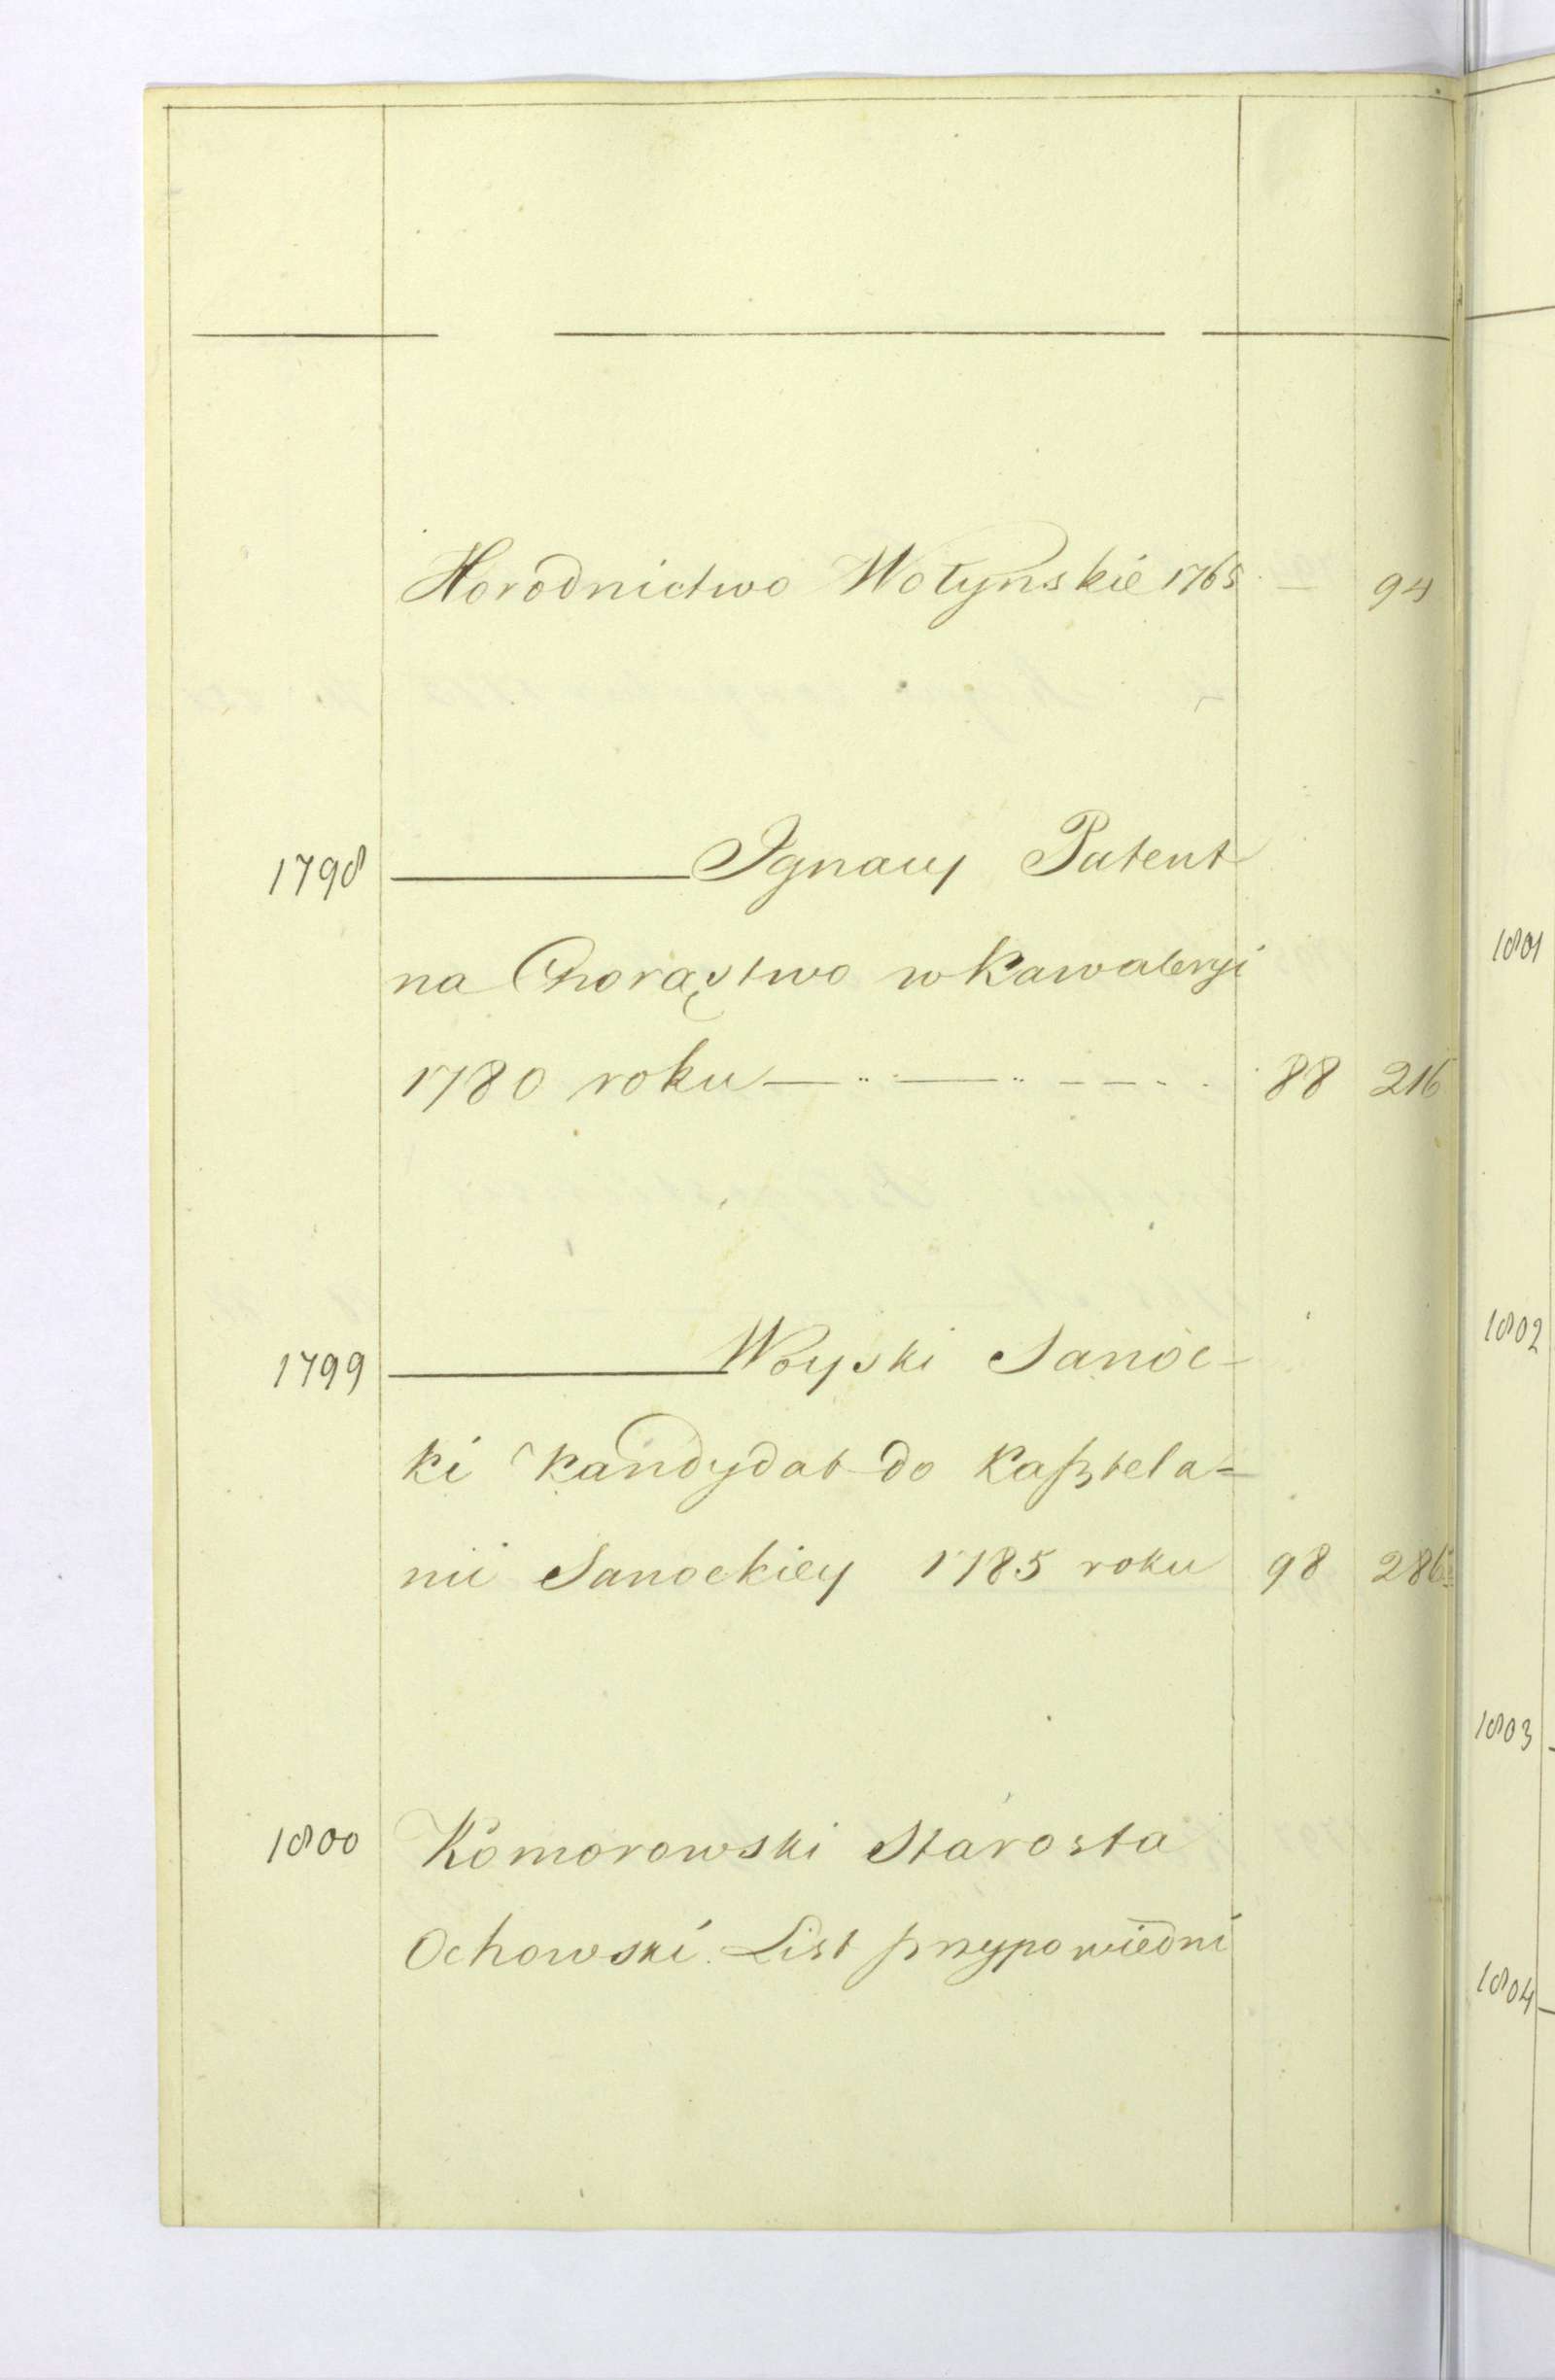 Horodnictwo Wołynskie 1765 — 94
1798 Ignacy Patent
na Chorąstwo w Kawaleryi
1780 roku 88 216
1799 Woyski Sanoc-
ki kandydat do Kasztela=
nii Sanockiey 1785 roku 98 286
1800 Komorowski Starosta
Ochowski. List przypowiedni
1801
1802
1803
1804